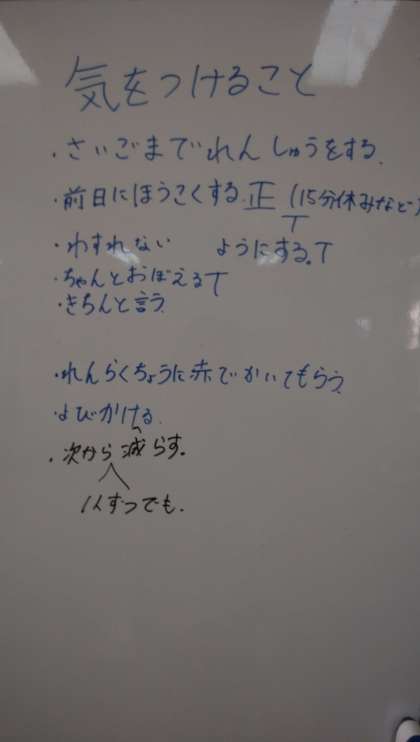 気をつけること
・さいごまでれんしゅうをする.
・前日にほうこくする.正 (15分休みなど)
T
・わすれない ようにする。T
・ちゃんとおぼえるT
・きちんと言う.
・れんらくちょうに赤でかいてもらう.
・よびかける.
・次から減らす。
1人ずつでも.